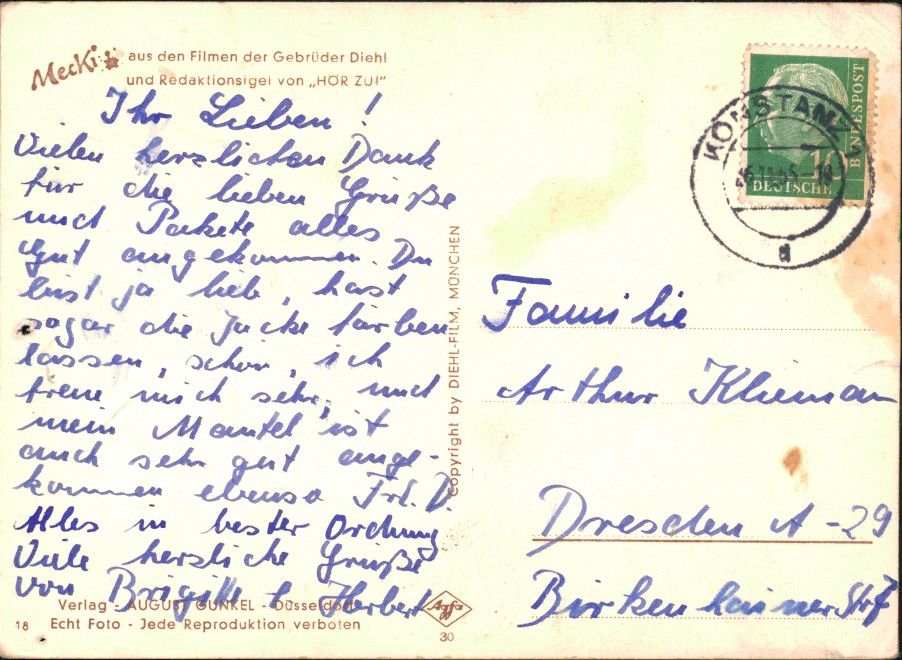 Mecki aus den Filmen der Gebrüder Diehl
und Redaktionsigel von „HÖR ZU!"
Ihr Lieben!
Vielen herzlichen Dank
für die lieben Grüße
und Pakete alles
gut angekommen. Du
bist ja lieb, hast
sogar die Jacke färben
lassen, schön, ich
freue mich sehr, und
mein Mantel ist
auch sehr gut ange-
kommen ebenso Frl. D.
Alles in bester Ordnung
Viele herzliche Grüße
von Brigitte & Herbert
Verlag - AUGUST GUNKEL - Düsseldorf
18 Echt Foto - Jede Reproduktion verboten
Agfa
30
Copyright by DIEHL-FILM, MÜNCHEN
KONSTANZ
a
10
DEUTSCHE
BUNDESPOST
Familie
Arthur Klieman
Dresden A-29
Birkenhainerstr